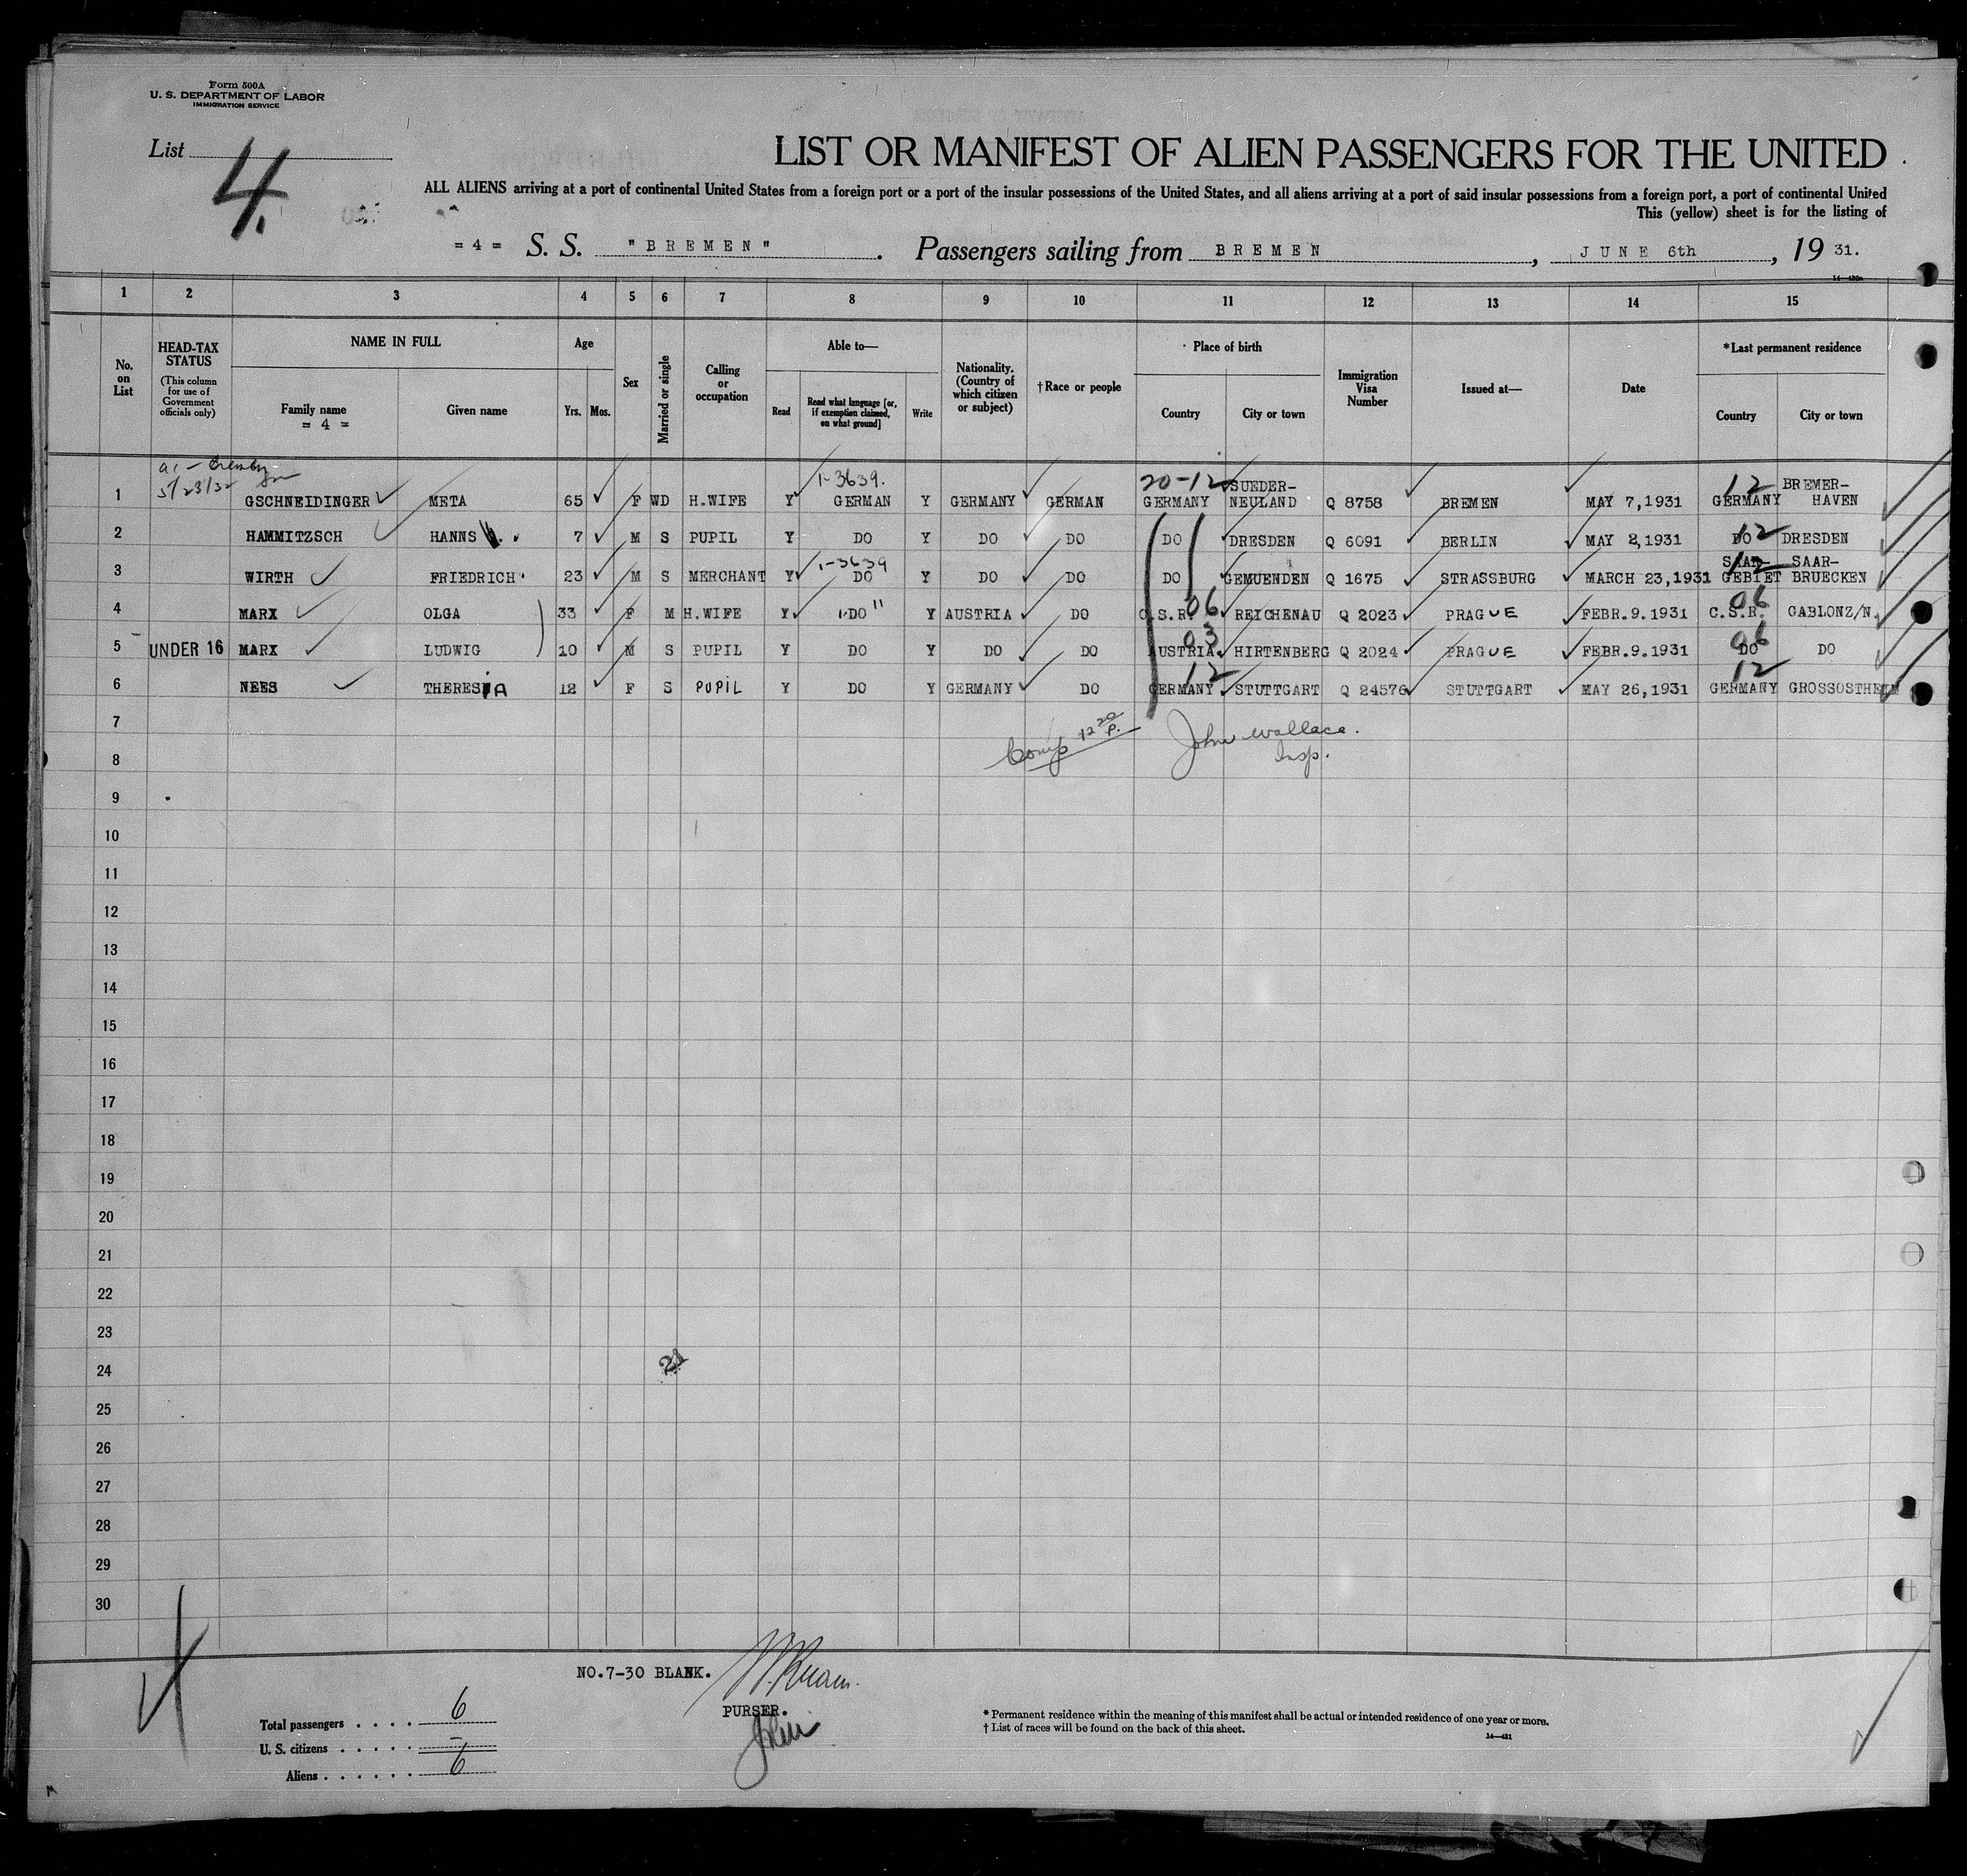 Form 500A
U. S. DEPARTMENT OF LABOR
IMMIGRATION SERVICE
List 4.
LIST OR MANIFEST OF ALIEN PASSENGERS FOR THE UNITED
ALL ALIENS arriving at a port of continental United States from a foreign port or a port of the insular possessions of the United States, and all aliens arriving at a port of said insular possessions from a foreign port, a port of continental United
This (yellow) sheet is for the listing of
= 4 = S. S. "BREMEN". Passengers sailing from BREMEN, JUNE 6th, 19 31.
1 2 3 4 5 6 7 8 9 10 11 12 13 14 15
No. on List
HEAD-TAX STATUS
(This column for use of Government officials only)
NAME IN FULL
Family name
= 4 =
Given name
Age
Yrs. Mos.
Sex
Married or single
Calling or occupation
Able to—
Read
Read what language [or, if exemption claimed, on what ground]
Write
Nationality. (Country of which citizen or subject)
†Race or people
Place of birth
Country
City or town
Immigration Visa Number
Issued at—
Date
*Last permanent residence
Country
City or town
5/23/32
1-3639. 20-12 SUEDER- 12 BREMER-
1 GSCHNEIDINGER META 65 F WD H.WIFE Y GERMAN Y GERMANY GERMAN GERMANY NEULAND Q 8758 BREMEN MAY 7,1931 GERMANY HAVEN
2 HAMMITZSCH HANNS 7 M S PUPIL Y DO Y DO DO DO DRESDEN Q 6091 BERLIN MAY 2,1931 DO 12 DRESDEN
1-3639 SAAR- 12 SAAR-
3 WIRTH FRIEDRICH 23 M S MERCHANT Y DO Y DO DO DO GEMUENDEN Q 1675 STRASSBURG MARCH 23,1931 GEBIET BRUECKEN
4 MARX OLGA 33 F M H.WIFE Y DO " Y AUSTRIA DO C.S.R. 06 REICHENAU Q 2023 PRAGUE FEBR.9.1931 C.S.R. 06 GABLONZ/N.
5 UNDER 16 MARX LUDWIG 10 M S PUPIL Y DO Y DO DO AUSTRIA 03 HIRTENBERG Q 2024 PRAGUE FEBR.9.1931 DO 06 DO
6 NEES THERESIA 12 F S PUPIL Y DO Y GERMANY DO GERMANY 12 STUTTGART Q 24576 STUTTGART MAY 26,1931 GERMANY 12 GROSSOSTHEIM
7
Comp 12 20 P. John Wallace.
Insp.
8
9
10
11
12
13
14
15
16
17
18
19
20
21
22
23
24
25
26
27
28
29
30
NO.7-30 BLANK.
PURSER.
Total passengers . . . . 6
U. S. citizens . . . . . —
Aliens . . . . . . 6
* Permanent residence within the meaning of this manifest shall be actual or intended residence of one year or more.
† List of races will be found on the back of this sheet.
14—431